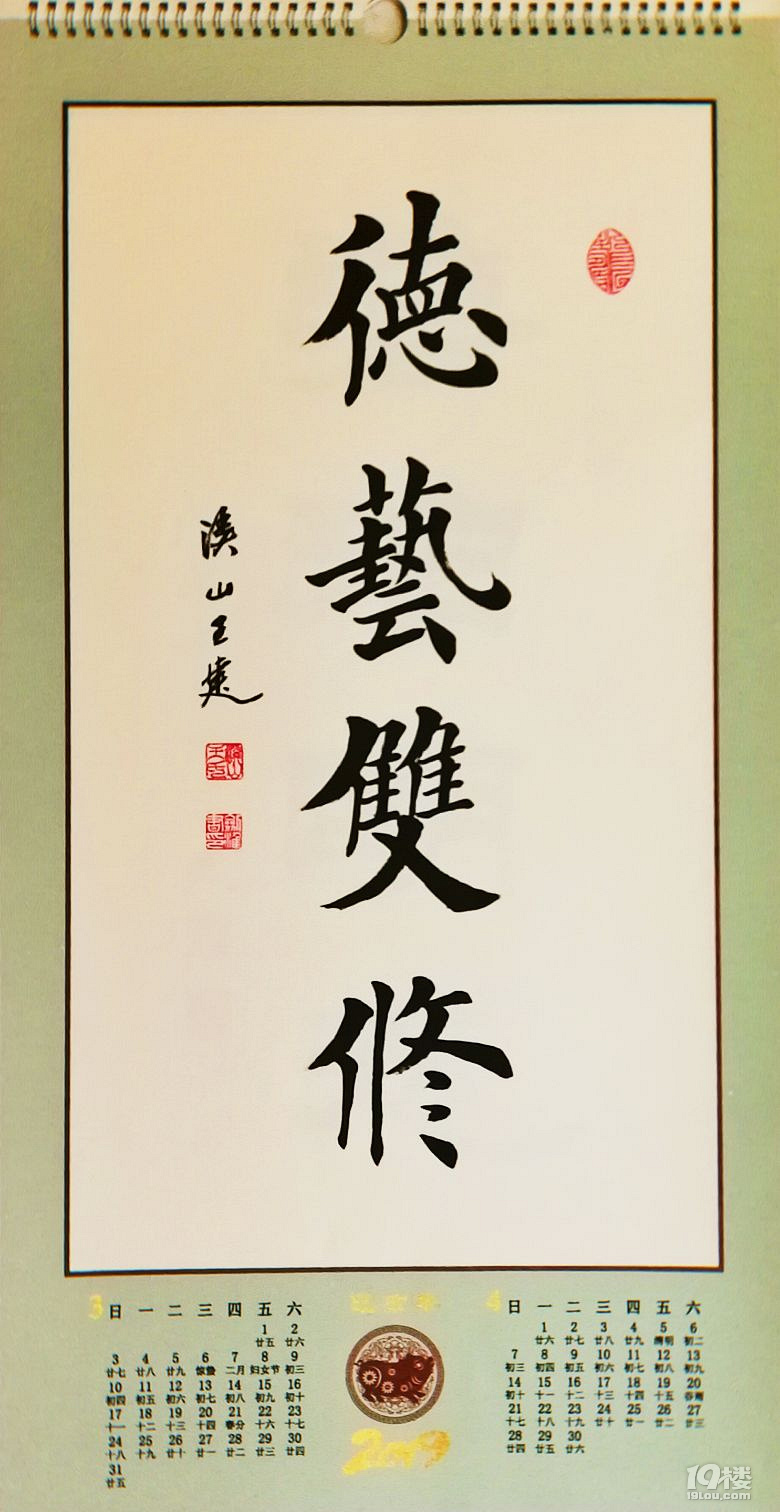 德藝雙修
溪山王建
3 日 一 二 三 四 五 六
1 2
廿五 廿六
3 4 5 6 7 8 9
廿七 廿八 廿九 惊蛰 二月 妇女节 初三
10 11 12 13 14 15 16
初四 初五 初六 初七 初八 初九 初十
17 18 19 20 21 22 23
十一 十二 十三 十四 春分 十六 十七
24 25 26 27 28 29 30
十八 十九 廿十 廿一 廿二 廿三 廿四
31
廿五
2019
4 日 一 二 三 四 五 六
1 2 3 4 5 6
廿六 廿七 廿八 廿九 清明 初二
7 8 9 10 11 12 13
初三 初四 初五 初六 初七 初八 初九
14 15 16 17 18 19 20
初十 十一 十二 十三 十四 十五 谷雨
21 22 23 24 25 26 27
十七 十八 十九 廿十 廿一 廿二 廿三
28 29 30
廿四 廿五 廿六
19楼
19lou.com